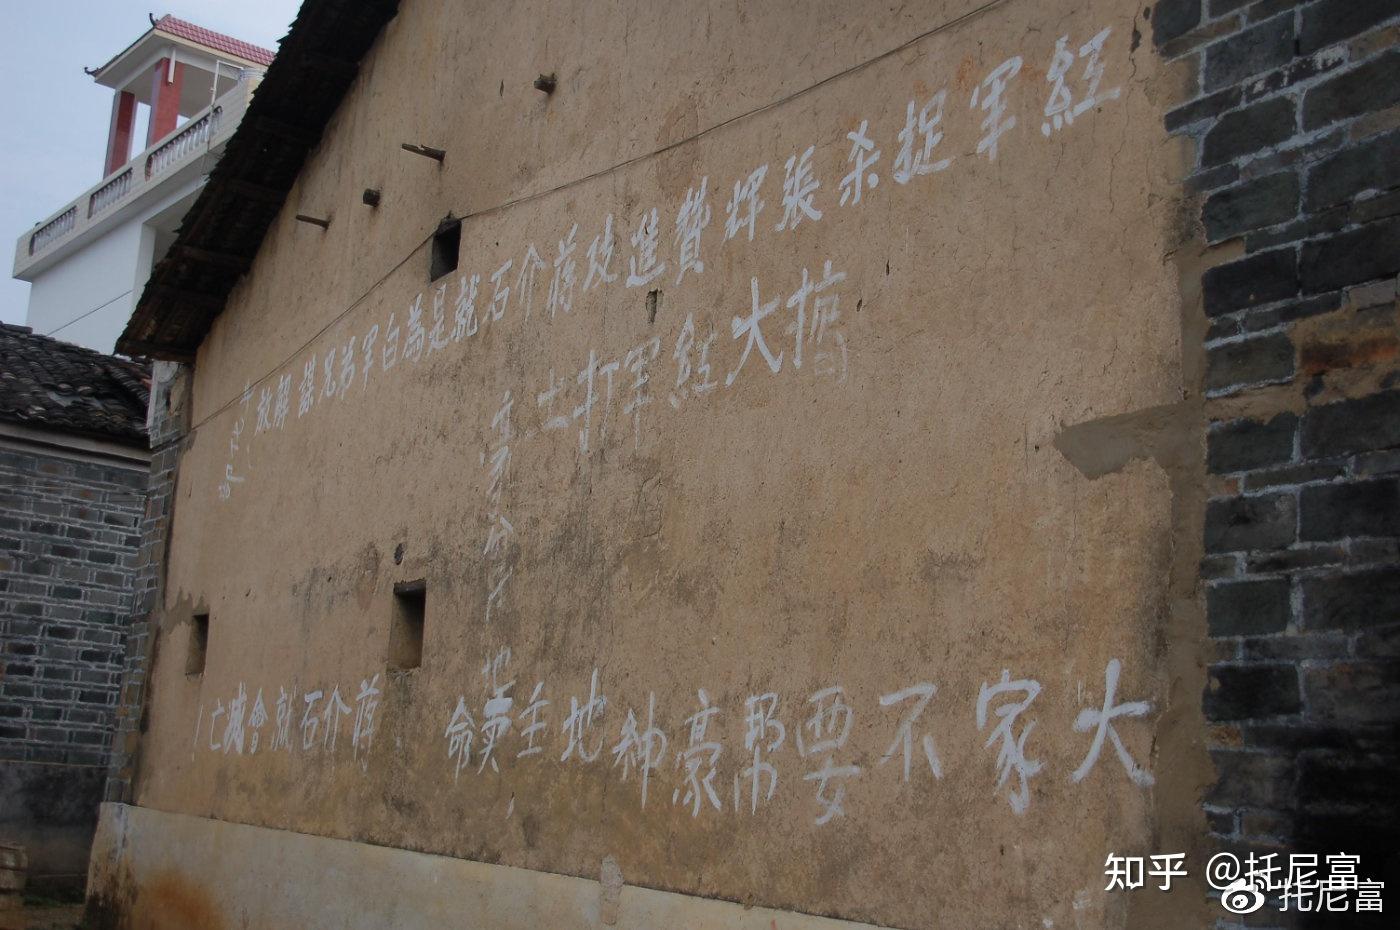 紅軍捉杀張輝贊進攻蒋介石就是為白軍弟兄謀解放
擴大紅軍打土
豪分田地
大家不要帮豪紳地主賣命、蒋介石就會滅亡！
知乎 @托尼富
@托尼富